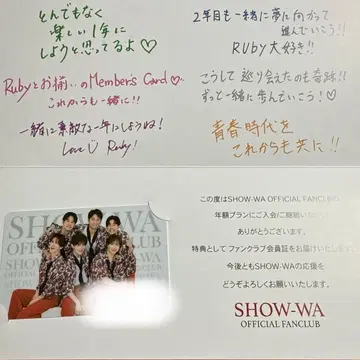 とんでもなく
楽しい1年に
しようと思ってるよ♡
Rubyとお揃いのMember's Card♡
これからも一緒に!!
一緒に素敵な一年にしようね!
Love Ruby!
2年目も一緒に夢に向かって
進んでいこう!!
RUby大好き!!
こうして巡り会えたのも奇跡!!
ずっと一緒に歩んでいこう!♡
青春時代を
これからも共に!!
SHOW-WA
OFFICIAL FANCLUB
この度はSHOW-WA OFFICIAL FANCLUB
年額プランにご入会/ご継続いた
ありがとうございます。
特典として ファンクラブ会員証をお届けいたします
今後ともSHOW-WAの応援を
どうぞよろしくお願いいたします。
SHOW-WA
OFFICIAL FANCLUB